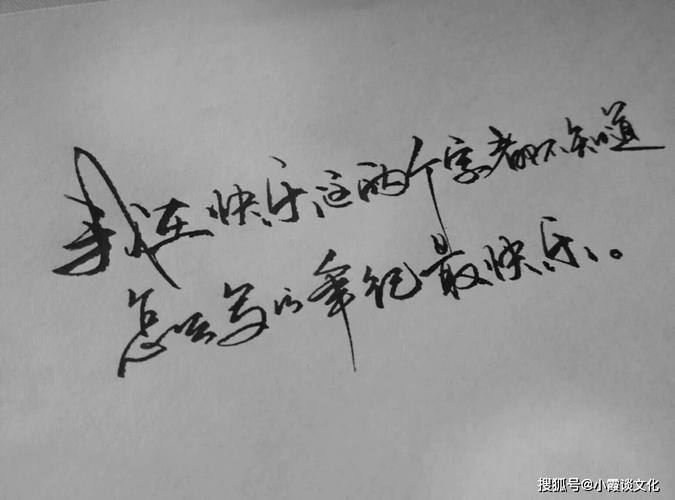 我连快乐这两个字都不知道
怎么写的年纪最快乐。
搜狐号@小霞谈文化